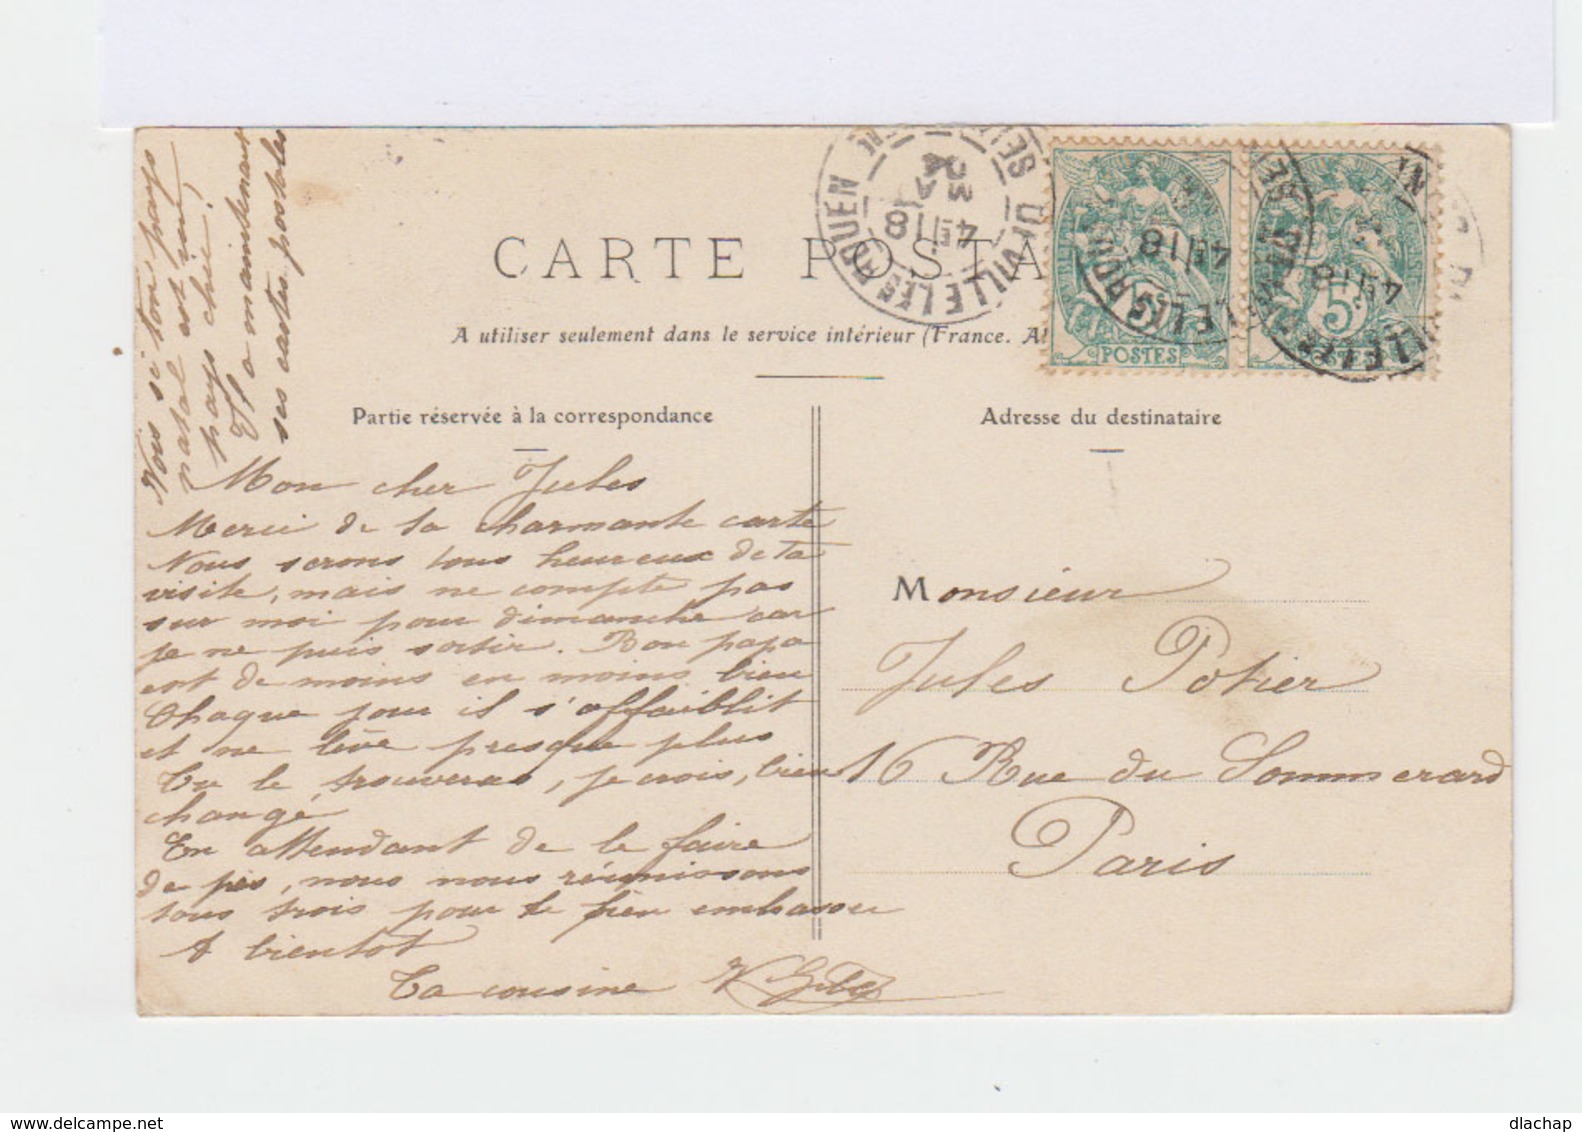 Vois si ton pays
natal est
pays chic !
Il a maintenant
ses cartes postales
CARTE POSTA
A utiliser seulement dans le service intérieur (France. Al
Partie réservée à la correspondance
Mon cher Jules
Merci de ta charmante carte
Nous serons tous heureux de ta
visite, mais ne compte pas
sur moi pour dimanche car
je ne puis sortir. Bon papa
est de moins en moins bien
Chaque jour il s'affaiblit
et ne lève presque plus
Tu le trouveras, je crois, bien
changé
En attendant de le faire
de près, nous nous réunissons
tous trois pour te bien embrasser
A bientot
Ta cousine
Adresse du destinataire
Monsieur
Jules Potier
16 Rue du Sommerard
Paris
SEINE
OUVILLE LES ROUEN
4E 18
03
POSTES
5
4E 18
5
4E 18
dlachap